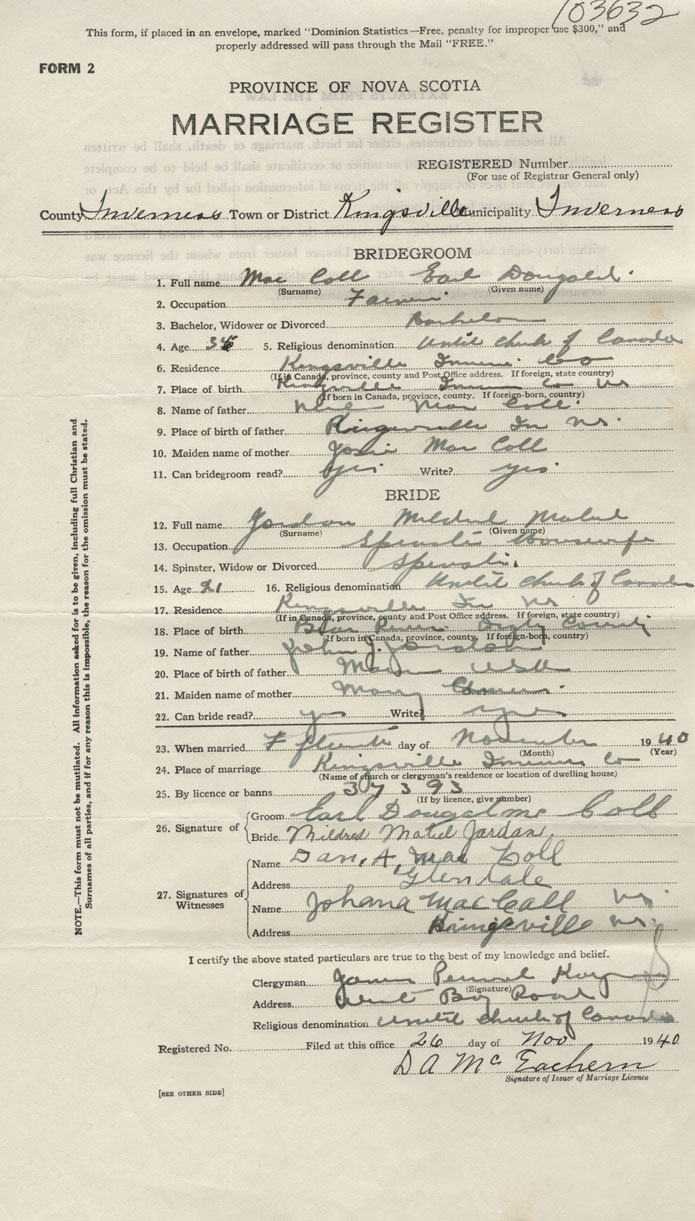 103632
This form, if placed in an envelope, marked "Dominion Statistics—Free, penalty for improper use $300," and
properly addressed will pass through the Mail "FREE."
FORM 2
PROVINCE OF NOVA SCOTIA
MARRIAGE REGISTER
REGISTERED Number
(For use of Registrar General only)
County Inverness Town or District Kingsville Municipality Inverness
BRIDEGROOM
1. Full name Mac Coll Earl Dougald
(Surname) (Given name)
2. Occupation Farmer
3. Bachelor, Widower or Divorced Bachelor
4. Age 5. Religious denomination United church of Canada
6. Residence Kingsville Co
(If in Canada, province, county and Post Office address. If foreign, state country)
7. Place of birth Kingsville Co NS
(If born in Canada, province, county. If foreign-born, country)
8. Name of father Mac Coll
9. Place of birth of father Kingsville In NS.
10. Maiden name of mother Josie Mac Coll
11. Can bridegroom read? yes Write? yes
BRIDE
12. Full name Jordan Mildred Mabel
(Surname) (Given name)
13. Occupation Spinster housewife
14. Spinster, Widow or Divorced Spinster
15. Age 21 16. Religious denomination United church of Canada
17. Residence Kingsville In NS
(If in Canada, province, county and Post Office address. If foreign, state country)
18. Place of birth Bear River Digby County
(If born in Canada, province, county. If foreign-born, country)
19. Name of father John J. Jordan
20. Place of birth of father USA
21. Maiden name of mother Mary
22. Can bride read? yes Write? yes
23. When married Fifteenth day of November 1940
(Month) (Year)
24. Place of marriage Kingsville Co
(Name of church or clergyman's residence or location of dwelling house)
25. By licence or banns 37393
(If by licence, give number)
26. Signature of
Groom Earl Dougal mc Coll
Bride Mildred Mabel Jordan
27. Signatures of Witnesses
Name Dan, A, Mac Coll
Address Glendale
Name Johana MacCall NS.
Address Kingsville NS.
NOTE.—This form must not be mutilated. All information asked for is to be given, including full Christian and
Surnames of all parties, and if for any reason this is impossible, the reason for the omission must be stated.
I certify the above stated particulars are true to the best of my knowledge and belief.
Clergyman James
(Signature)
Address West Bay Road
Religious denomination United church of Canada
Registered No. Filed at this office 26 day of Nov 1940
D A McEachern
Signature of Issuer of Marriage Licence
[SEE OTHER SIDE]